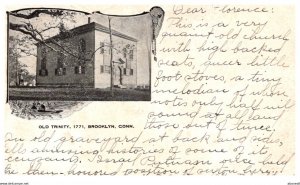 Dear Florence:
This is a very
quaint old church
with high backed
seats, queer little
foot stoves, a tiny
melodian of when
notes only half will
sound at all and
OLD TRINITY, 1771, BROOKLYN, CONN.
out of tune.
An old graveyard at east end tells
amusing histories of some of its
occupants. Israel Putnam once held
the then honored position of sexton here.